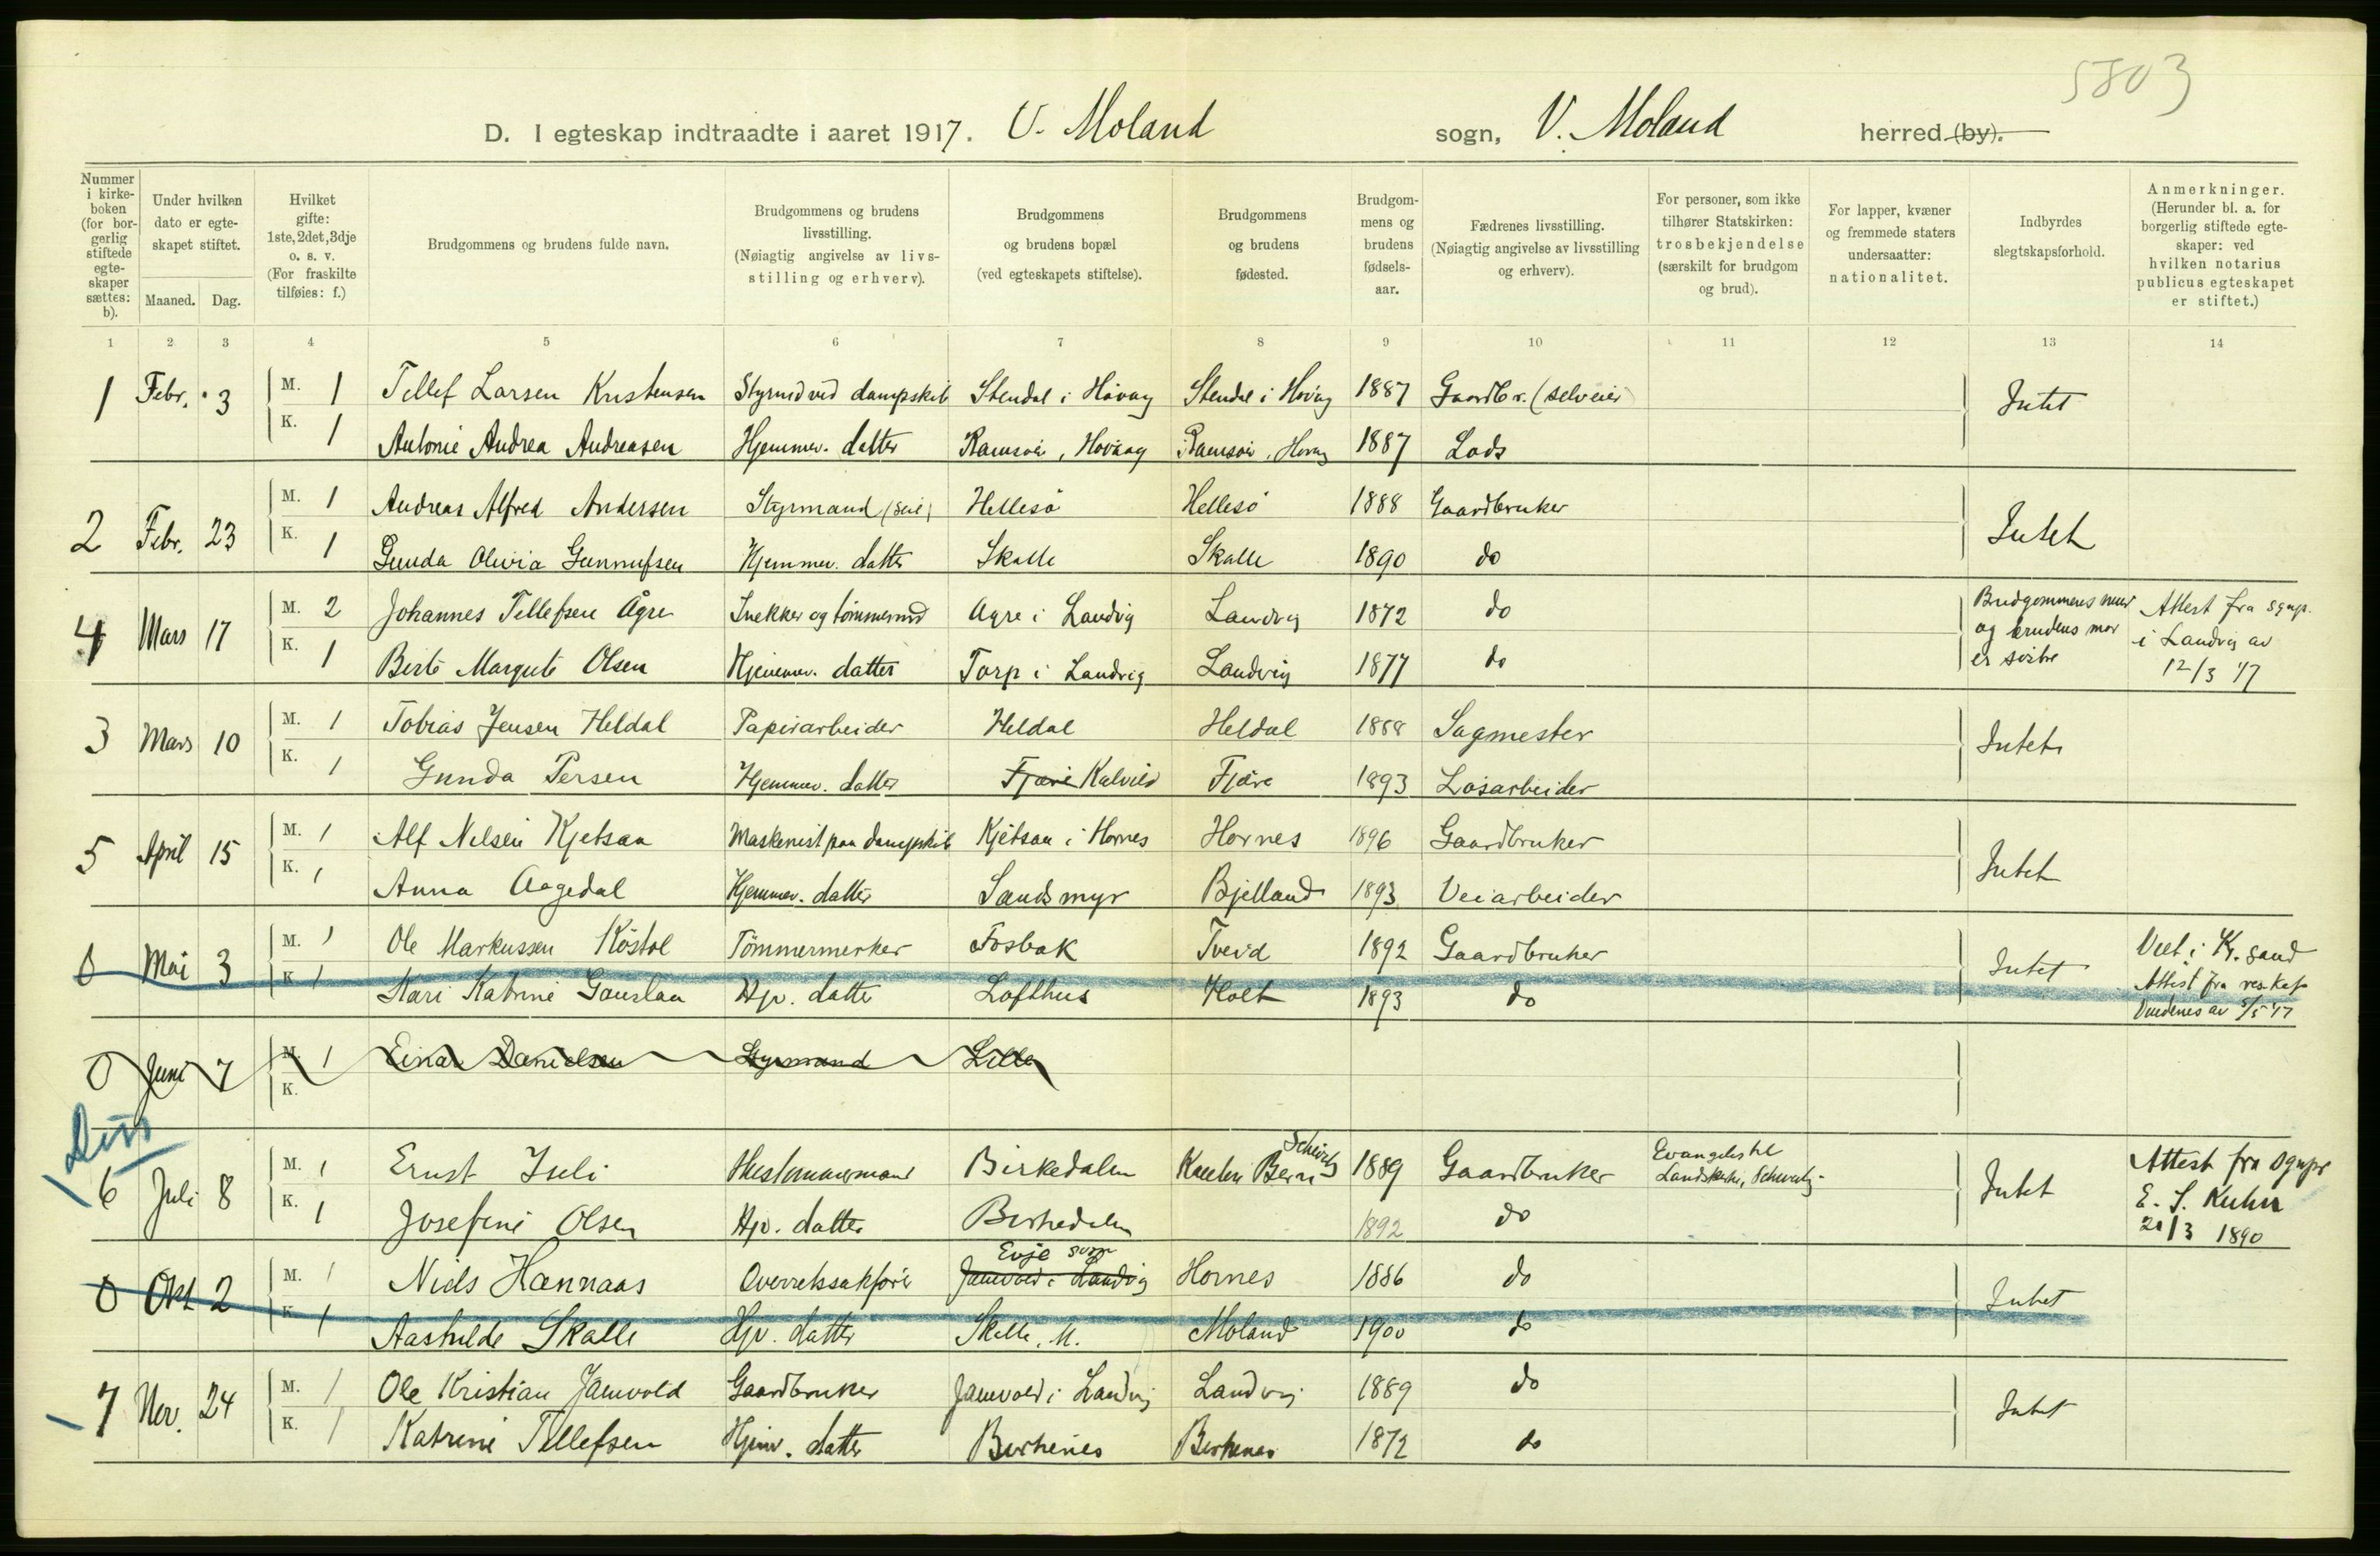 5803
D. I egteskap indtraadte i aaret 1917. V. Moland sogn, V. Moland herred (by).
Nummer i kirkeboken (for borgerlig stiftede egteskaper sættes: b).
Under hvilken dato er egteskapet stiftet.
Maaned. Dag.
Hvilket gifte: 1ste, 2det, 3dje o. s. v. (For fraskilte tilføies: f.)
Brudgommens og brudens fulde navn.
Brudgommens og brudens livsstilling. (Nøiagtig angivelse av livsstilling og erhverv).
Brudgommens og brudens bopæl (ved egteskapets stiftelse).
Brudgommens og brudens fødested.
Brudgommens og brudens fødselsaar.
Fædrenes livsstilling. (Nøiagtig angivelse av livsstilling og erhverv).
For personer, som ikke tilhører Statskirken: trosbekjendelse (særskilt for brudgom og brud).
For lapper, kvæner og fremmede staters undersaatter: nationalitet.
Indbyrdes slegtskapsforhold.
Anmerkninger. (Herunder bl. a. for borgerlig stiftede egteskaper: ved hvilken notarius publicus egteskapet er stiftet.)
1 2 3 4 5 6 7 8 9 10 11 12 13 14
1 Febr. 3 M. 1 Tellef Larsen Kristensen Styrmd ved dampskib Stendal i Høvag Stendal i Høvag 1887 Gaardbr. (selveier) Intet
K. 1 Antonie Andrea Andreasen Hjemmev. datter Ramsøi, Høvaag Ramsøi, Høvag 1887 Lods
2 Febr. 23 M. 1 Andreas Alfred Andersen Styrmand (seil) Hellesö Hellesö 1888 Gaardbruker Intet
K. 1 Gunda Olivia Gunnufsen Hjemmev. datter Skalle Skalle 1890 do
4 Mars 17 M. 2 Johannes Tellefsen Ågre Snekker og tømmermd Agre i Landvig Landvig 1872 do Brudgommens mor og brudens mor er søstre Attest fra sgnpr. i Landvig av 12/3 17
K. 1 Berte Margrete Olsen Hjemmev. datter Torp i Landvig Landvig 1877 do
3 Mars 10 M. 1 Tobias Jensen Heldal Papirarbeider Heldal Heldal 1888 Sagmester Intet
K. 1 Gunda Persen Hjemmev. datter Fjære Kalvild Fjære 1893 Løsarbeider
5 April 15 M. 1 Alf Nelsen Kjetsaa Maskenist paa dampskib Kjetsaa i Hornes Hornes 1896 Gaardbruker Intet
K. 1 Anna Aagedal Hjemmev. datter Sandsmyr Bjelland 1893 Veiarbeider
0 Mai 3 M. 1 Ole Markussen Köstöl Tömmermerker Fosbæk Tveid 1892 Gaardbruker Intet Viet i Kr.sand
K. 1 Kari Katrine Gauslaa Hjv. datter Lofthus Holt 1893 do Attest fra res. kap. av 5/5 17
0 Juni 7 M. 1 Einar Danielsen Styrmand Lille
K.
6 Juli 8 M. 1 Ernst Iseli Hestemmermand Birkedalen Kanton Bern Schweiz 1889 Gaardbruker Evangelisk Landskirke, Schweitz Intet Attest fra sgnpr E. S. Kuhn 20/3 1890
K. 1 Josefine Olsen Hjv. datter Birkedalen 1892 do
0 Okt 2 M. 1 Niels Hannaas Overretssakfører Evje sogn Jamvold i Landvig Hornes 1886 do Intet
K. 1 Aashilde Skalle Hjv. datter Skalle, M. Moland 1900 do
7 Nov. 24 M. 1 Ole Kristian Jamvold Gaardbruker Jamvold i Landvig Landvig 1889 do Intet
K. 1 Katrine Tellefsen Hjemv. datter Birkenes Birkenes 1872 do